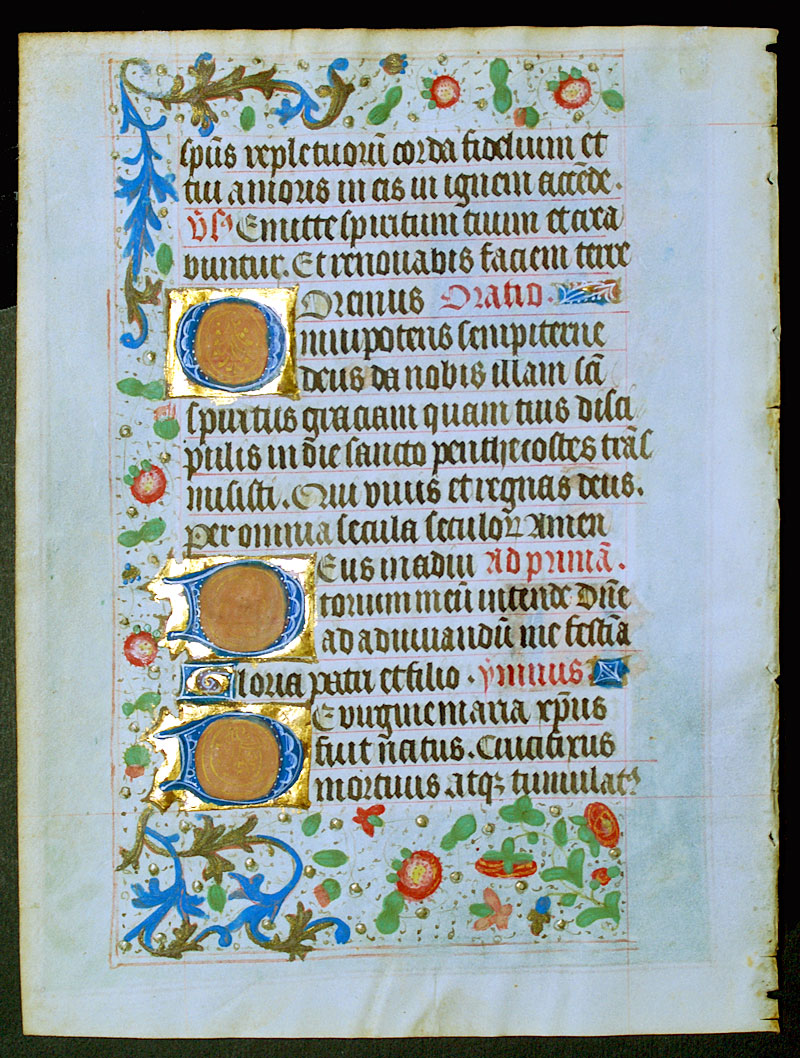 sp̃us reple tuorũ corda fidelium et
tui amoris in eis in ignem accẽde.
v̄s Emitte spiritum tuum et crea
buntur. Et renouabis faciem terre
Oremus Oratio.
Omnipotens sempiterne
deus da nobis illam sc̃i
spiritus graciam quam tuis disci
pulis in die sancto penthecostes trãs
misisti. Qui viuis et regnas deus.
Per omnia secula seculoꝝ Amen
Deus in adiu Ad primã.
torium meũ intende Dñe
ad adiuuandũ me festĩa
Gloria patri et filio . ymnus
De virgine maria xp̃us
fuit ñ citus. Crucifixus
mortuus atqꝫ tumulatꝰ